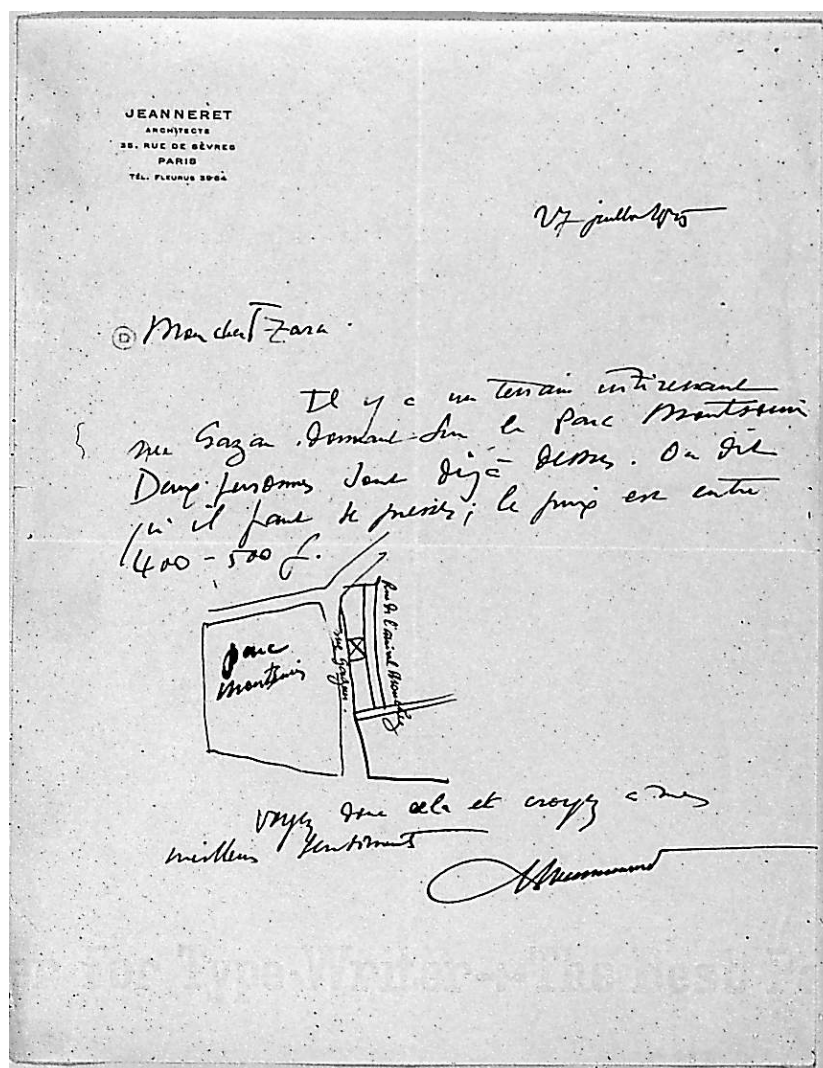 JEANNERET
ARCHITECTE
35, RUE DE SÈVRES
PARIS
TÉL. FLEURUS 39-84
27 juillet 1925
D Mon cher Tzara.
Il y a un terrain intéressant
rue Gazan. donnant sur le Parc Montsouris
Deux personnes sont déjà dessus. On dit
qu'il faut se presser; le prix est entre
400-500 f.
parc
montsouris
rue Gazan.
Rue de l'amiral Mouchez
voyez donc cela et croyez à mes
meilleurs sentiments
for Type-Writer The Best